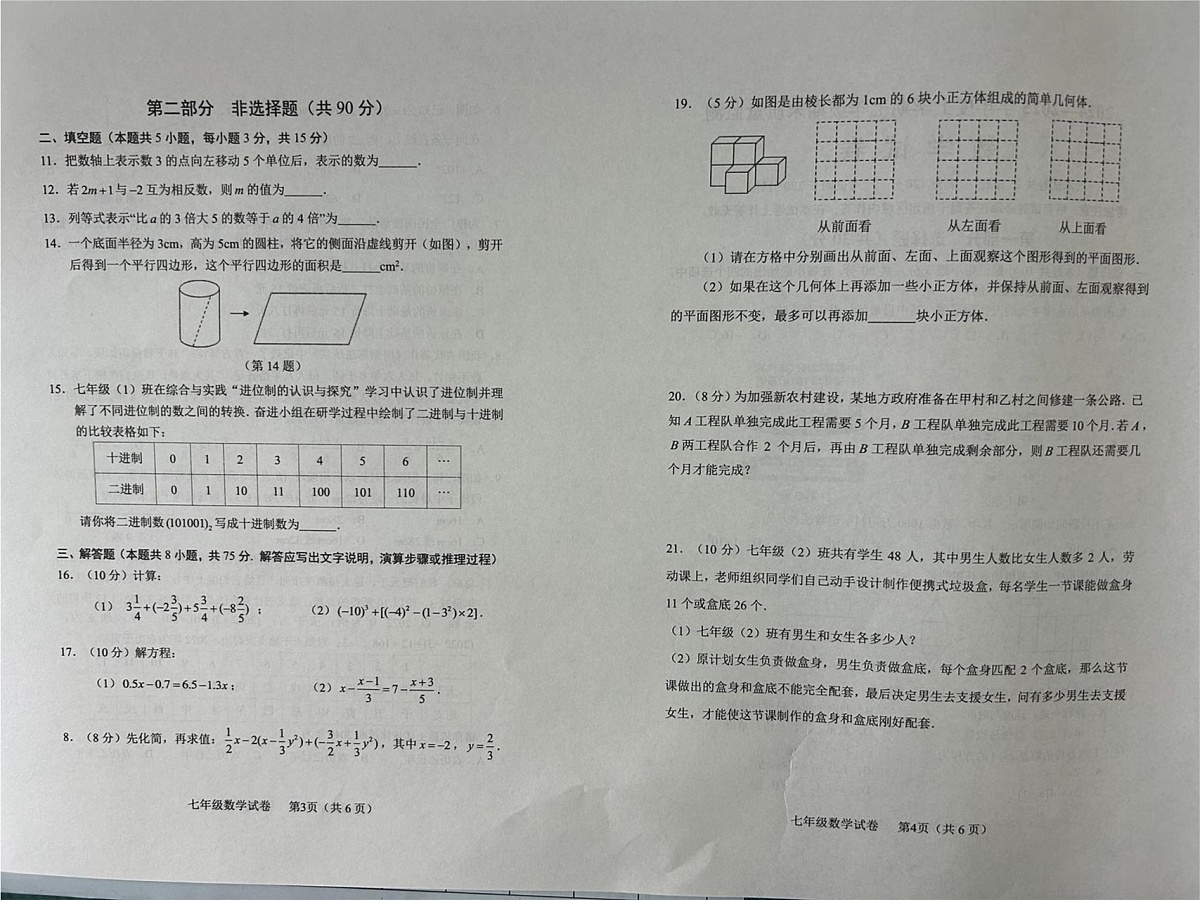 第二部分 非选择题（共 90 分）
二、填空题（本题共 5 小题，每小题 3 分，共 15 分）
11．把数轴上表示数 3 的点向左移动 5 个单位后，表示的数为______．
12．若 2m+1 与 −2 互为相反数，则 m 的值为______．
13．列等式表示“比 a 的 3 倍大 5 的数等于 a 的 4 倍”为______．
14．一个底面半径为 3cm，高为 5cm 的圆柱，将它的侧面沿虚线剪开（如图），剪开
后得到一个平行四边形，这个平行四边形的面积是______cm²．
（第 14 题）
15．七年级（1）班在综合与实践“进位制的认识与探究”学习中认识了进位制并理
解了不同进位制的数之间的转换．奋进小组在研学过程中绘制了二进制与十进制
的比较表格如下：
十进制 0 1 2 3 4 5 6 …
二进制 0 1 10 11 100 101 110 …
请你将二进制数 (101001)₂ 写成十进制数为______．
三、解答题（本题共 8 小题，共 75 分．解答应写出文字说明，演算步骤或推理过程）
16．（10 分）计算：
（1） 3 1/4 +(−2 3/5)+5 3/4 +(−8 2/5) ； （2） (−10)³+[(−4)²−(1−3²)×2]．
17．（10 分）解方程：
（1） 0.5x−0.7=6.5−1.3x ； （2） x− (x−1)/3 =7− (x+3)/5 ．
8．（8 分）先化简，再求值： 1/2 x−2(x− 1/3 y²)+(− 3/2 x+ 1/3 y²)，其中 x=−2，y= 2/3 ．
七年级数学试卷 第3页（共 6 页）
19．（5 分）如图是由棱长都为 1cm 的 6 块小正方体组成的简单几何体．
从前面看 从左面看 从上面看
（1）请在方格中分别画出从前面、左面、上面观察这个图形得到的平面图形．
（2）如果在这个几何体上再添加一些小正方体，并保持从前面、左面观察得到
的平面图形不变，最多可以再添加______块小正方体．
20．（8 分）为加强新农村建设，某地方政府准备在甲村和乙村之间修建一条公路．已
知 A 工程队单独完成此工程需要 5 个月，B 工程队单独完成此工程需要 10 个月．若 A，
B 两工程队合作 2 个月后，再由 B 工程队单独完成剩余部分，则 B 工程队还需要几
个月才能完成？
21．（10 分）七年级（2）班共有学生 48 人，其中男生人数比女生人数多 2 人，劳
动课上，老师组织同学们自己动手设计制作便携式垃圾盒，每名学生一节课能做盒身
11 个或盒底 26 个．
（1）七年级（2）班有男生和女生各多少人？
（2）原计划女生负责做盒身，男生负责做盒底，每个盒身匹配 2 个盒底，那么这节
课做出的盒身和盒底不能完全配套，最后决定男生去支援女生，问有多少男生去支援
女生，才能使这节课制作的盒身和盒底刚好配套．
七年级数学试卷 第4页（共 6 页）